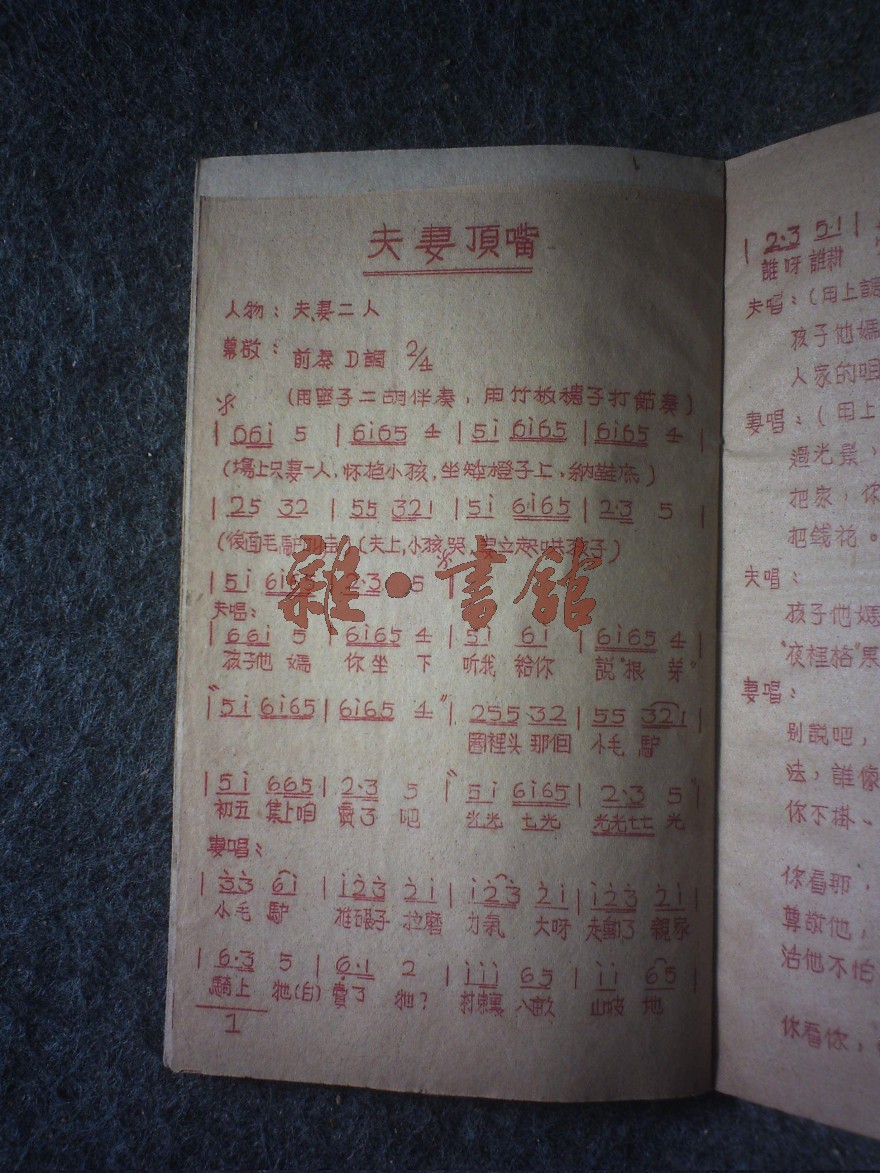 夫妻頂嘴
人物：夫、妻二人
幕啟：前奏 D調 2/4
(用墜子二胡伴奏，用竹板檀子打節奏)
| 0 6 i 5 | 6 i 6 5 4 | 5 i 6 i 6 5 | 6 i 6 5 4 |
(場上只妻一人，怀抱小孩，坐矮橙子上，納鞋底)
| 2 5 3 2 | 5 5 3 2 1 | 5 i 6·i 6 5 | 2·3 5
(後面毛馿 (夫上，小孩哭，妻立 哄孩子)
| 5 i 2·3 5 |
雜·書館
夫唱：
| 6 6 i 5 | 6 i 6 5 4 | 5 i 6 i | 6 i 6 5 4 |
孩子他 媽 你坐 下 听我 給你 説"根 芽"
"| 5 i 6 i 6 5 | 6 i 6 5 4 " | 2 5 5·3 2 | 5 5 3 2 1 |
圈裡头 那個 小毛 馿
| 5 i 6 6 5 | 2·3 5 " 5 i 6 i 6 5 | 2·3 5 " |
初五 集上咱 賣了 吧 光光 七光 光光七七 光
妻唱：
| 3 3 6 i | i 2 3 2 i | i 2 3 2 i | i 2 3 2 i |
小毛 馿 推碾子 拉磨 力氣 大呀 走動了 親家
| 6·3 5 | 6·1 2 | i i i 6 5 | i i 6 5 |
騎上 牠(白) 賣了 牠? 村東裏 八畝 山坡 地
1
| 2·3 5·1 |
誰呀 誰耕
夫唱：(用上調
孩子他媽
人家的咱
妻唱：(用上
過光景，
把家，你
把钱花。
夫唱：
孩子他媽
"夜桎格"果
妻唱：
别説吧，
法，誰像
你不掛、
你看那，
尊敬他，
沾他不怕
你看你，